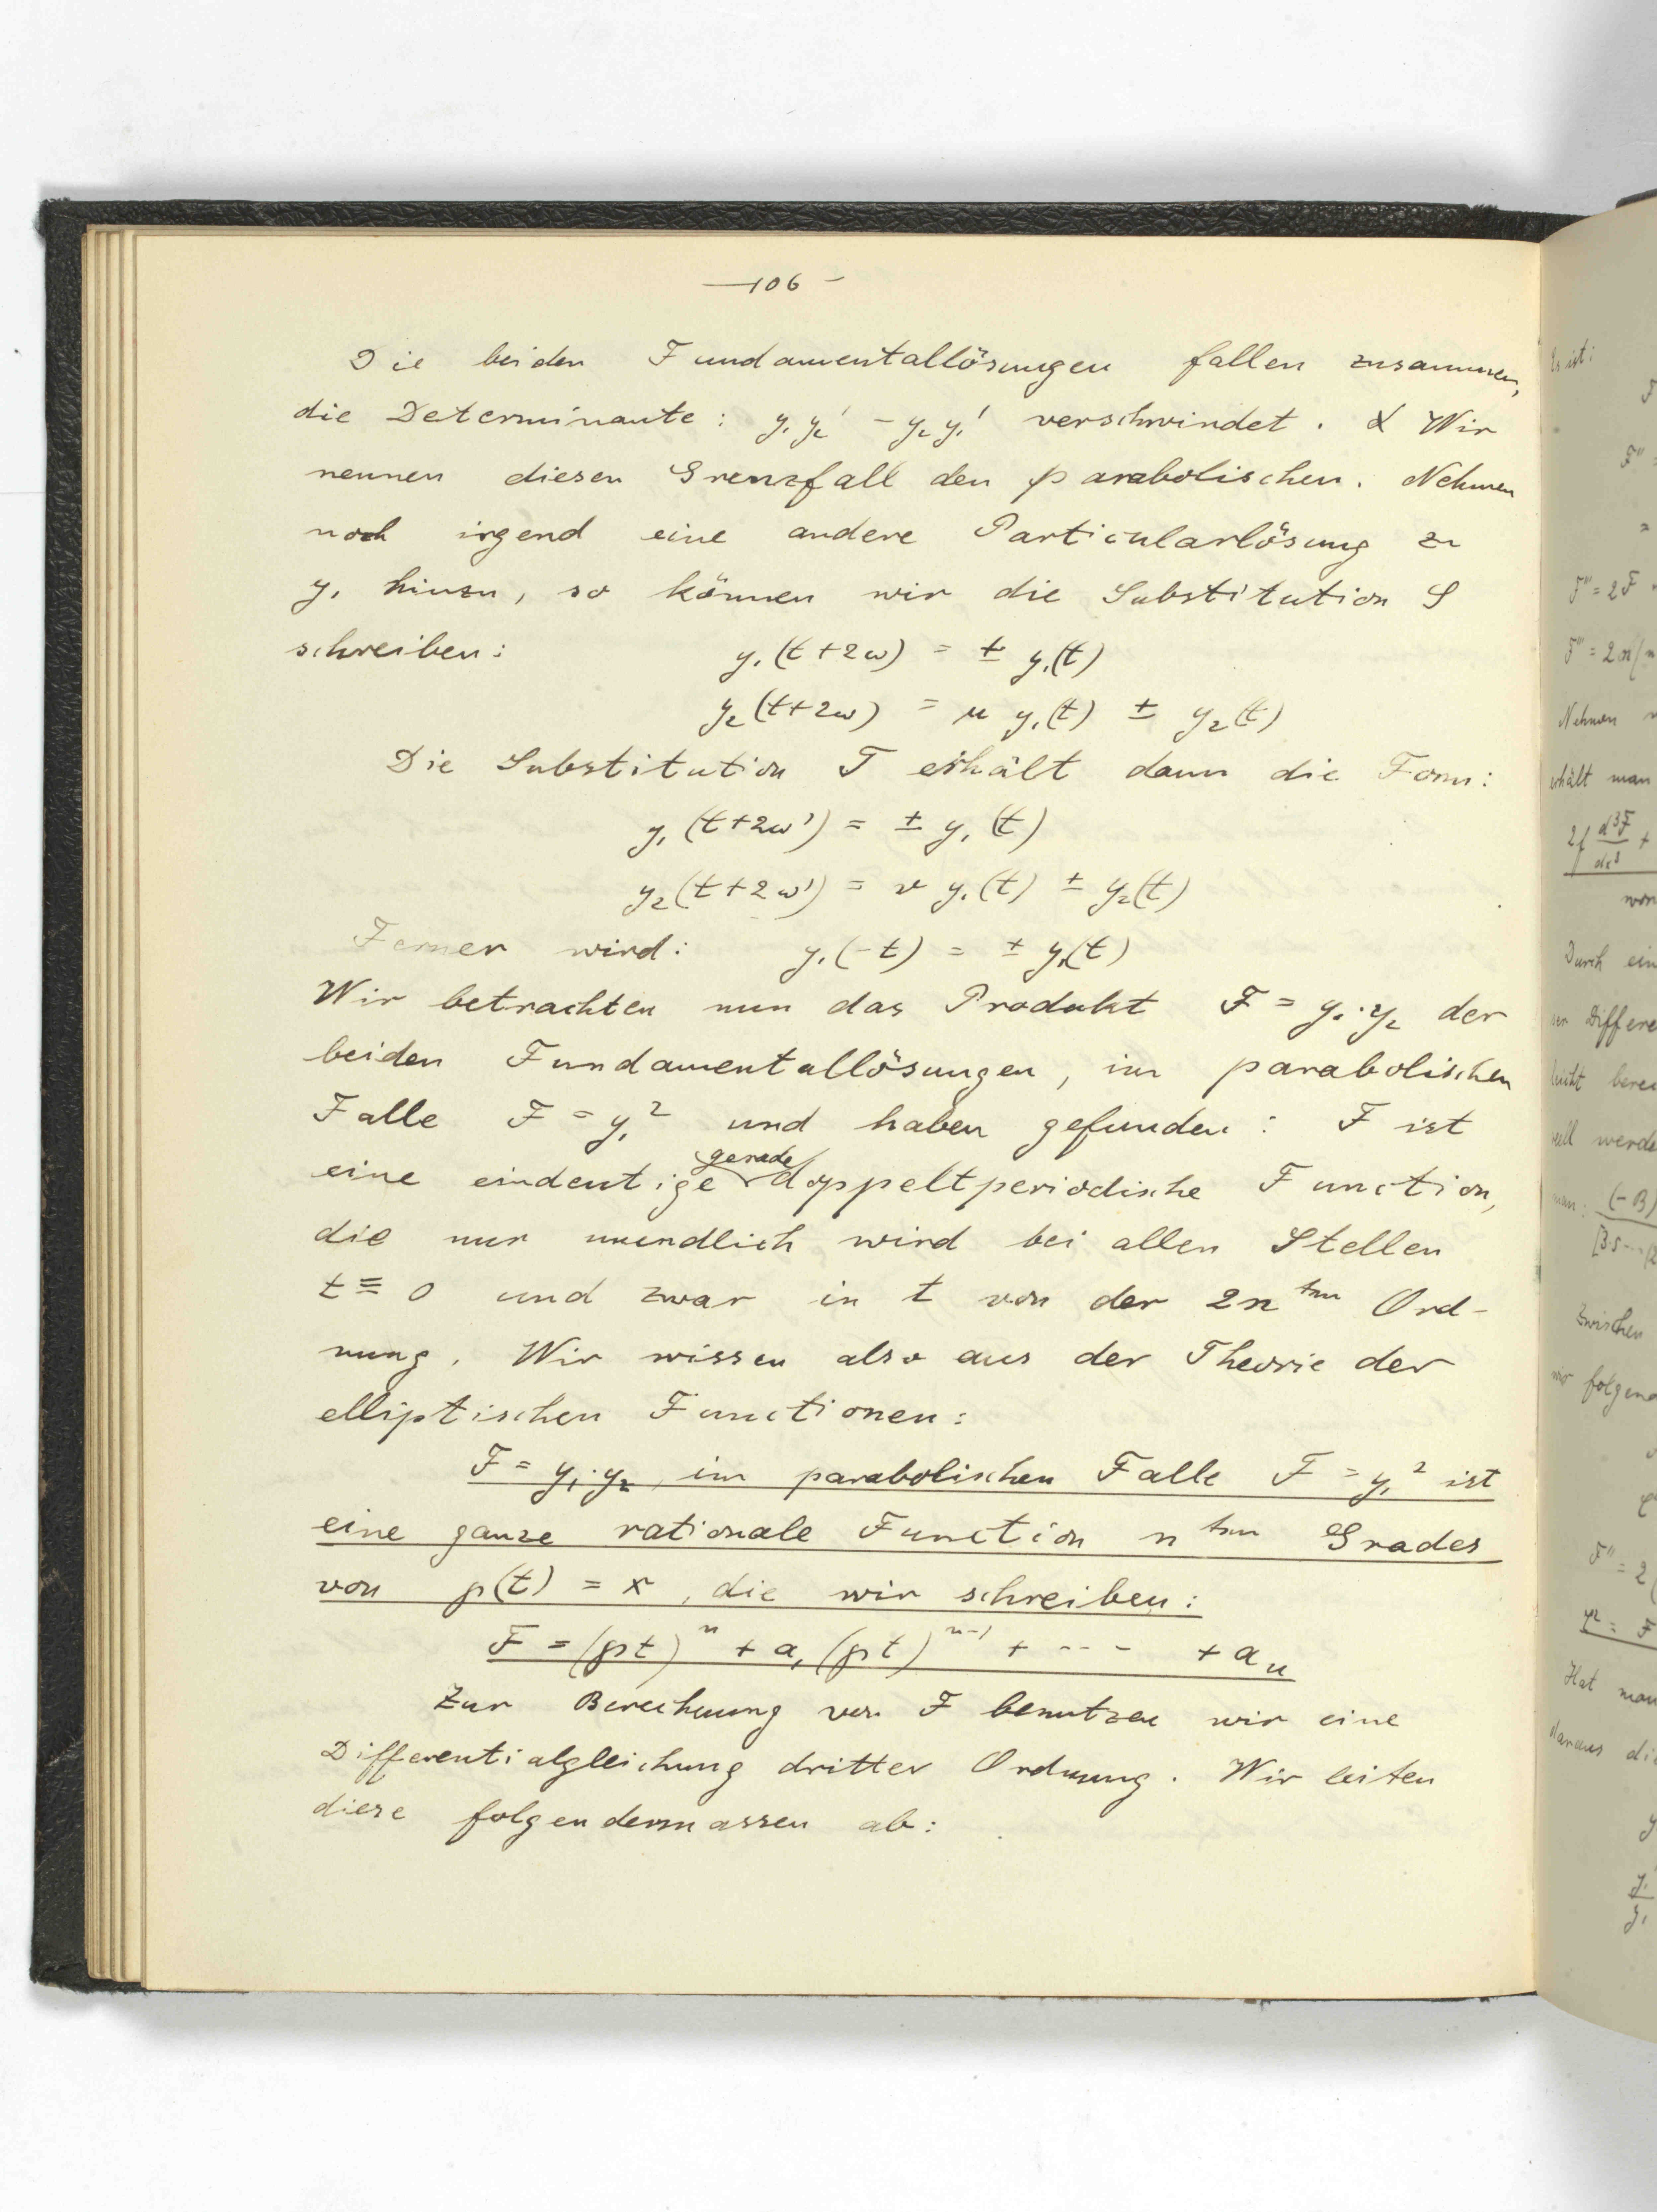 —106—
Die beiden Fundamentallösungen fallen zusammen,
die Determinante: y₁y₂' - y₂y₁' verschwindet. Wir
nennen diesen Grenzfall den parabolischen. Nehmen
noch irgend eine andere Particularlösung zu
y₁ hinzu, so können wir die Substitution S
schreiben: y₁(t+2ω) = ± y₁(t)
y₂(t+2ω) = μ y₁(t) ± y₂(t)
Die Substitution T erhält dann die Form:
y₁(t+2ω') = ± y₁(t)
y₂(t+2ω') = ν y₁(t) ± y₂(t)
Ferner wird: y₁(-t) = ± y₁(t)
Wir betrachten nun das Produkt F = y₁·y₂ der
beiden Fundamentallösungen, im parabolischen
Falle F = y₁² und haben gefunden: F ist
eine eindeutige gerade doppeltperiodische Function,
die nur unendlich wird bei allen Stellen
t ≡ 0 und zwar in t von der 2n ten Ord-
nung. Wir wissen also aus der Theorie der
elliptischen Functionen:
F = y₁·y₂, im parabolischen Falle F = y₁² ist
eine ganze rationale Function n ten Grades
von p(t) = x, die wir schreiben:
F = (pt)ⁿ + a₁(pt)ⁿ⁻¹ + --- + aₙ
Zur Berechnung von F benutzen wir eine
Differentialgleichung dritter Ordnung. Wir leiten
diese folgendermassen ab:
Es ist:
F'''= 2F
Nehmen
erhält man
Durch ein
Differe
leicht bere
werde
Zwischen
wir folgend
F'' = 2
Hat man
daraus di